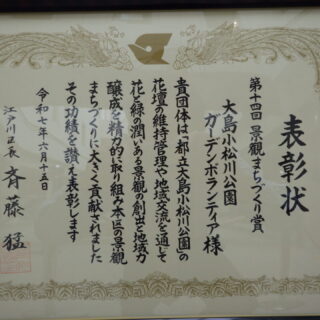 表彰状
第十四回 景観まちづくり賞
大島小松川公園
ガーデンボランティア様
貴団体は「都立大島小松川公園」の
花壇の維持管理や地域交流を通して
花と緑の潤いある景観の創出と地域力
醸成を精力的に取り組み本区の景観
まちづくりに大きく貢献されました
その功績を讃え表彰します
令和七年六月十五日
江戸川区長 斉藤 猛